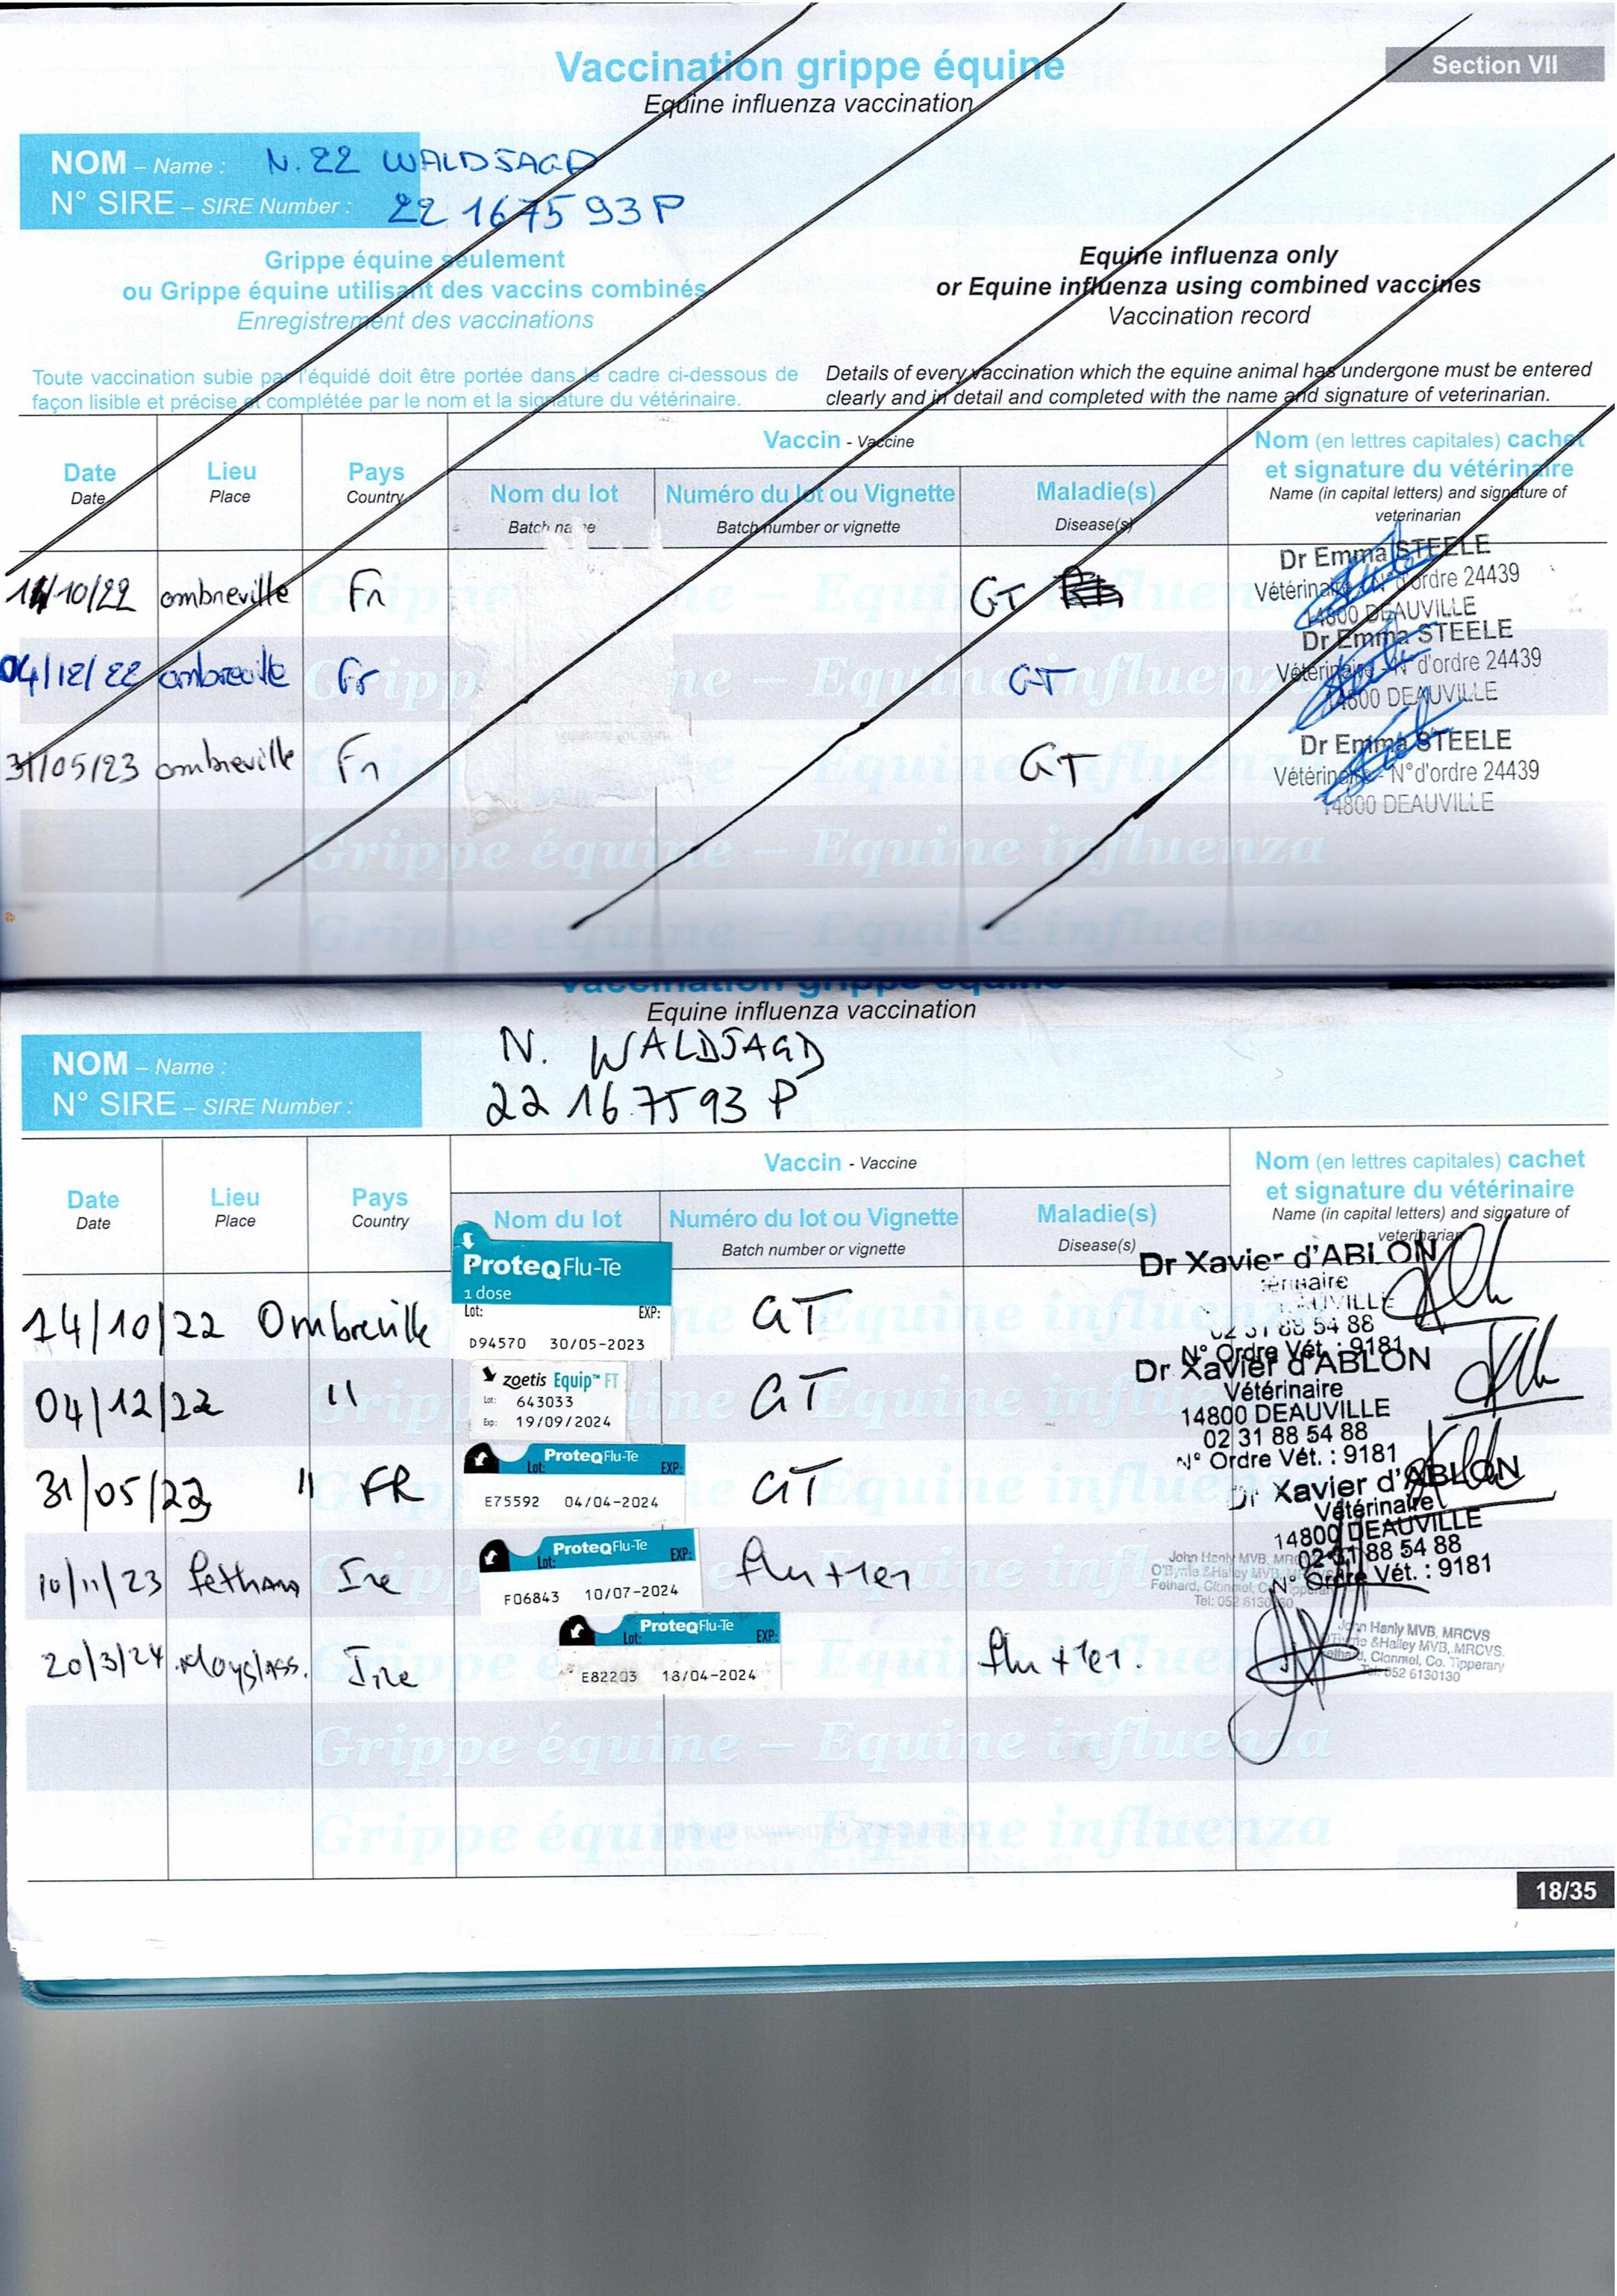 Vaccination grippe équine
Section VII
Equine influenza vaccination
NOM – Name : N. 22 WALDJAGD
N° SIRE – SIRE Number : 22 167593P
Grippe équine seulement
ou Grippe équine utilisant des vaccins combinés
Enregistrement des vaccinations
Equine influenza only
or Equine influenza using combined vaccines
Vaccination record
Toute vaccination subie par l'équidé doit être portée dans le cadre ci-dessous de
façon lisible et précise et complétée par le nom et la signature du vétérinaire.
Details of every vaccination which the equine animal has undergone must be entered
clearly and in detail and completed with the name and signature of veterinarian.
Date
Date
Lieu
Place
Pays
Country
Vaccin - Vaccine
Nom du lot
Batch name
Numéro du lot ou Vignette
Batch number or vignette
Maladie(s)
Disease(s)
Nom (en lettres capitales) cachet
et signature du vétérinaire
Name (in capital letters) and signature of
veterinarian
14/10/22 ombreville Fr GT
Dr Emma STEELE
Vétérinaire - N° d'ordre 24439
14800 DEAUVILLE
04/12/22 ombreville Fr GT
Dr Emma STEELE
Vétérinaire - N° d'ordre 24439
14800 DEAUVILLE
31/05/23 ombreville Fr GT
Dr Emma STEELE
Vétérinaire - N°d'ordre 24439
14800 DEAUVILLE
Grippe équine – Equine influenza
Grippe équine – Equine influenza
Vaccination grippe équine
Equine influenza vaccination
NOM – Name : N. WALDJAGD
N° SIRE – SIRE Number : 22 167593 P
Date
Date
Lieu
Place
Pays
Country
Vaccin - Vaccine
Nom du lot
Numéro du lot ou Vignette
Batch number or vignette
Maladie(s)
Disease(s)
Nom (en lettres capitales) cachet
et signature du vétérinaire
Name (in capital letters) and signature of
veterinarian
14/10/22 Ombreville
ProteqFlu-Te
1 dose
Lot: EXP:
D94570 30/05-2023
GT
Dr Xavier d'ABLON
02 31 88 54 88
N° Ordre Vét. : 9181
04/12/22 "
zoetis Equip™ FT
Lot: 643033
Exp: 19/09/2024
GT
Dr Xavier d'ABLON
Vétérinaire
14800 DEAUVILLE
02 31 88 54 88
N° Ordre Vét. : 9181
31/05/23 " FR
ProteqFlu-Te
Lot: EXP:
E75592 04/04-2024
GT
Dr Xavier d'ABLON
Vétérinaire
14800 DEAUVILLE
02 31 88 54 88
N° Ordre Vét. : 9181
10/11/23 Fethard Ire
ProteqFlu-Te
Lot: EXP:
F06843 10/07-2024
flu + tet
John Hanly MVB, MRCVS
O'Byrne &Halley MVB, MRCVS
Fethard, Clonmel, Co. Tipperary
Tel: 052 6130130
20/3/24 Moyglass. Ire
ProteqFlu-Te
Lot: EXP:
E82203 18/04-2024
flu + tet.
John Hanly MVB, MRCVS
O'Byrne &Halley MVB, MRCVS.
Fethard, Clonmel, Co. Tipperary
Tel: 052 6130130
Grippe équine – Equine influenza
Grippe équine – Equine influenza
18/35